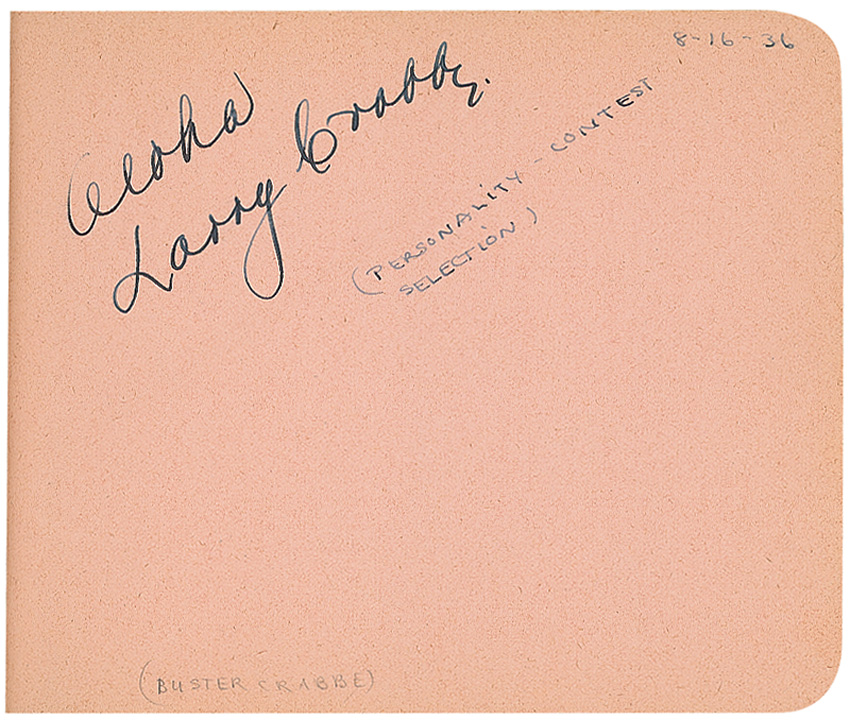 8-16-36
Aloha
Larry Crabbe.
(PERSONALITY - CONTEST
SELECTION)
(BUSTER CRABBE)